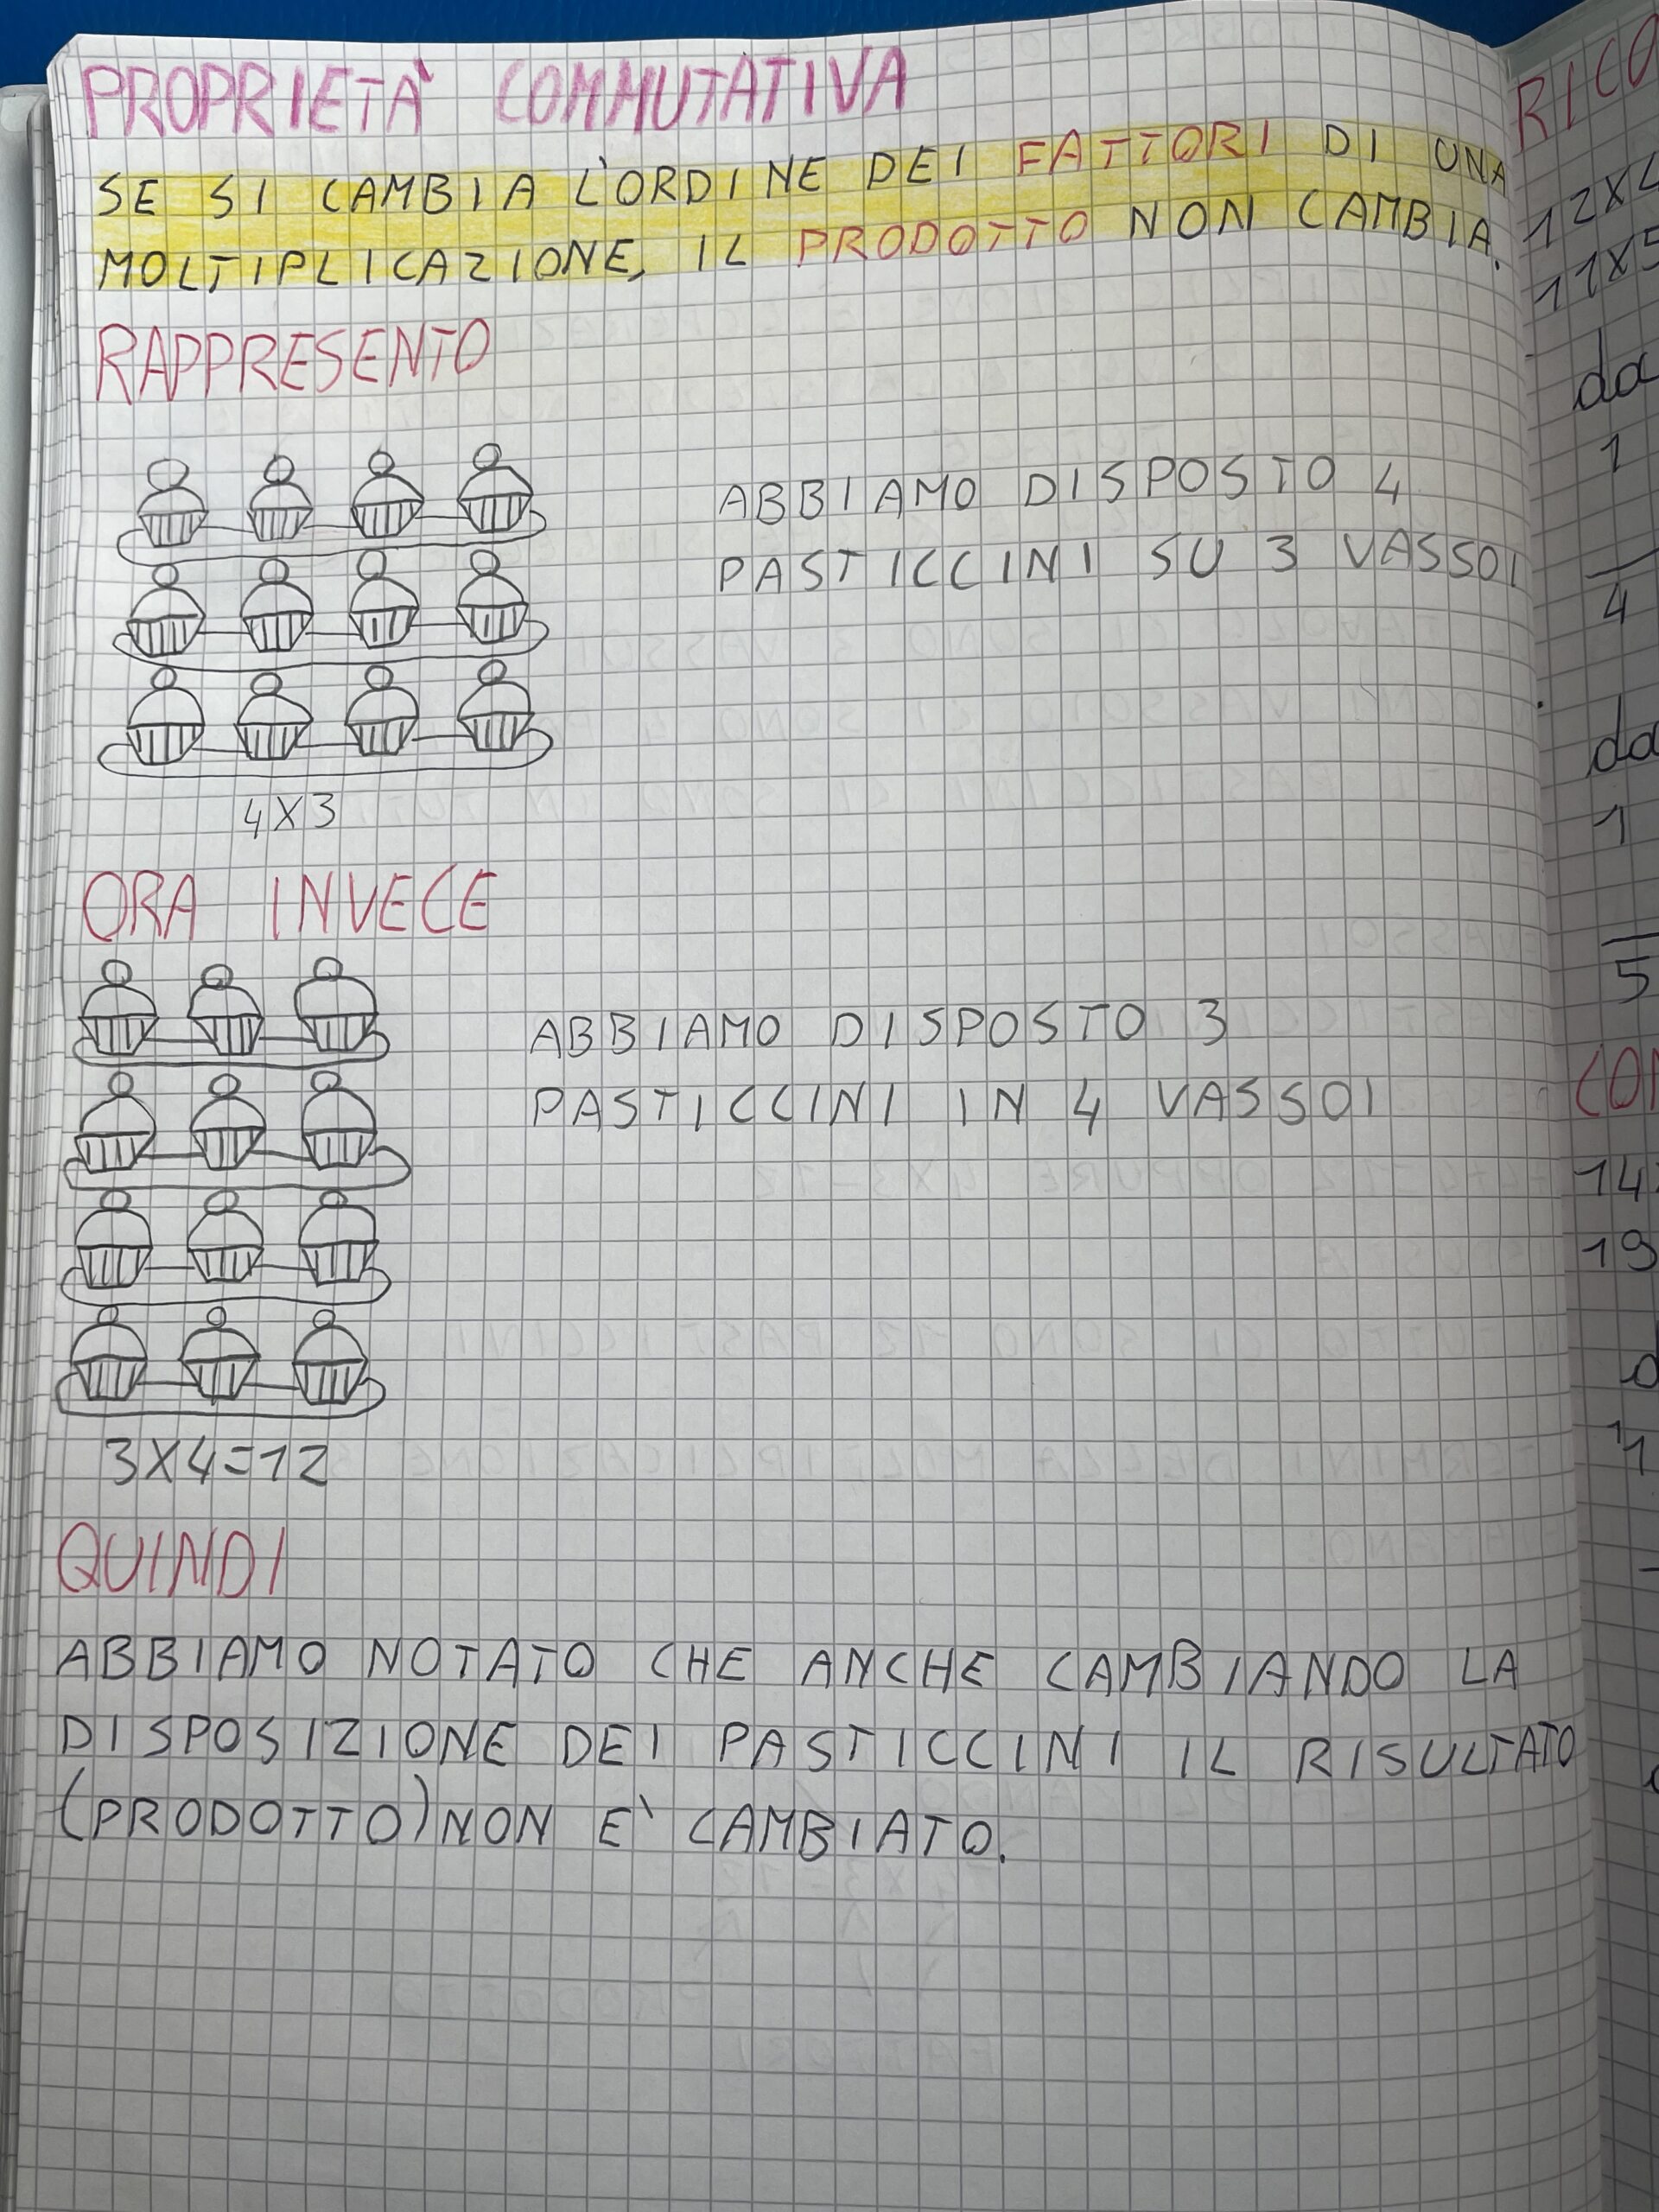 PROPRIETÀ COMMUTATIVA
SE SI CAMBIA L'ORDINE DEI FATTORI DI UNA
MOLTIPLICAZIONE, IL PRODOTTO NON CAMBIA.
RAPPRESENTO
ABBIAMO DISPOSTO 4
PASTICCINI SU 3 VASSOI
4X3
ORA INVECE
ABBIAMO DISPOSTO 3
PASTICCINI IN 4 VASSOI
3X4=12
QUINDI
ABBIAMO NOTATO CHE ANCHE CAMBIANDO LA
DISPOSIZIONE DEI PASTICCINI IL RISULTATO
(PRODOTTO) NON E' CAMBIATO.
da
1
4
da
1
5